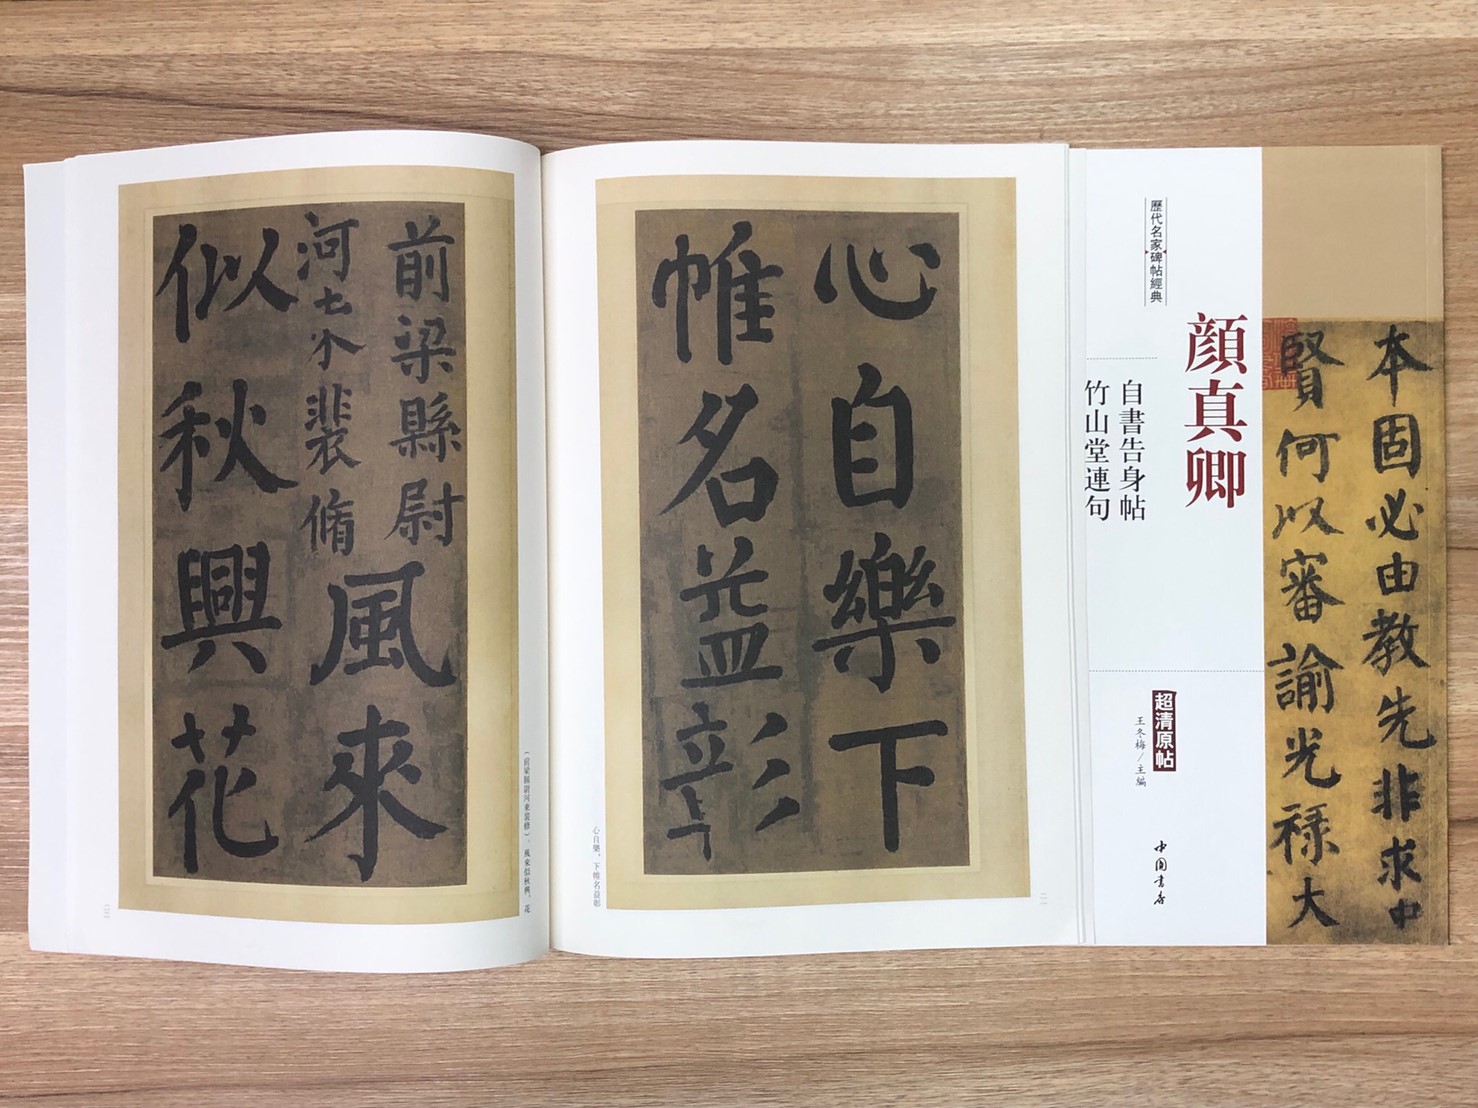 本固必由教先非求中
賢何以審諭光禄大
歷代名家碑帖經典
顔真卿
自書告身帖
竹山堂連句
超清原帖
王冬梅/主編
中国書店
心自樂下
帷名益彰
心自樂，下帷名益彰
二
前梁縣尉
河東裴脩
風來
似秋興花
（前梁縣尉河東裴修），風來似秋興，花
三